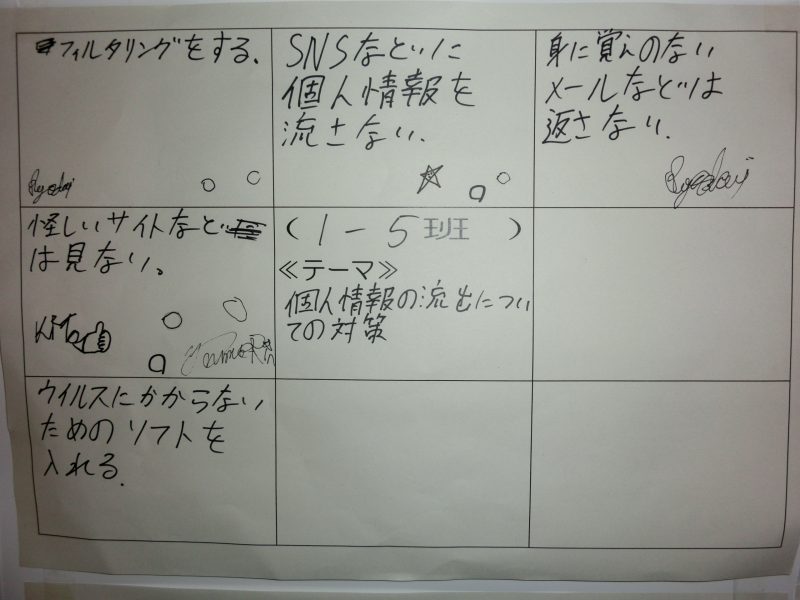 フィルタリングをする.
SNSなどに
個人情報を
流さない.
身に覚えのない
メールなどは
返さない.
怪しいサイトなど
は見ない。
(1-5班)
≪テーマ≫
個人情報の流出につい
ての対策
ウイルスにかからない
ためのソフトを
入れる.